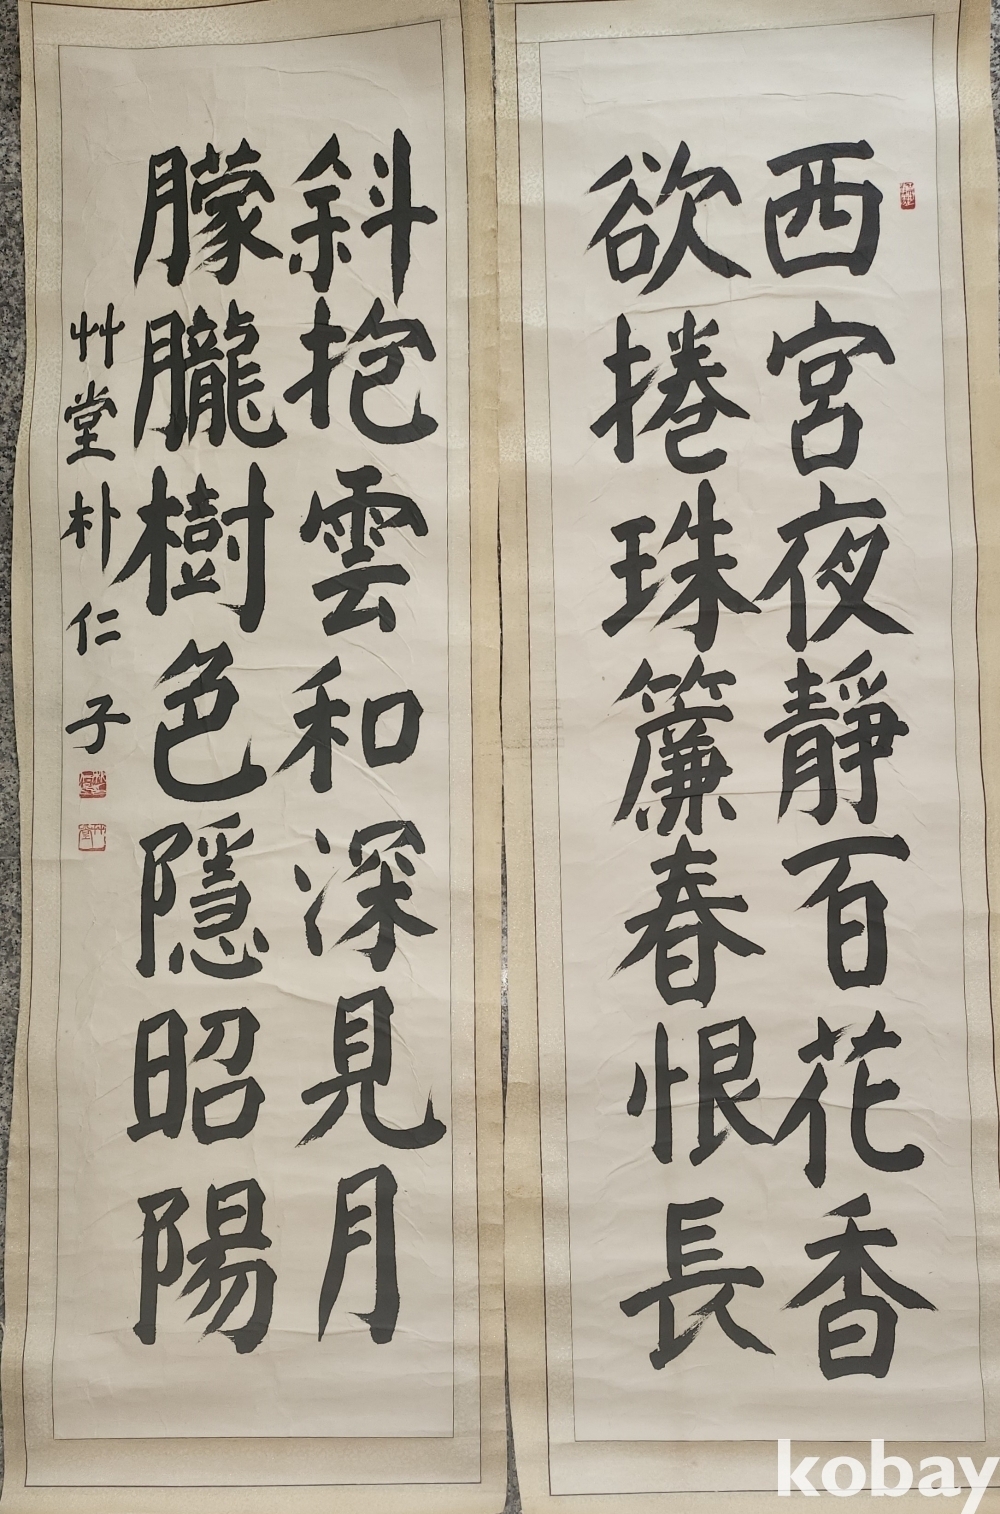 西宮夜靜百花香
欲捲珠簾春恨長
斜抱雲和深見月
朦朧樹色隱昭陽
艸堂朴仁子
kobay